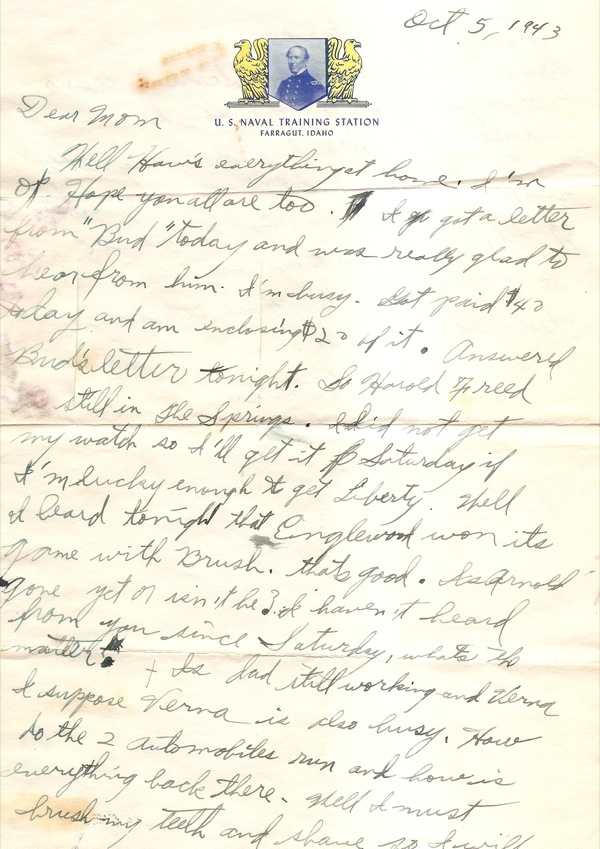 Oct 5, 1943
Dear Mom
U. S. NAVAL TRAINING STATION
FARRAGUT, IDAHO
Well How's everything at home. I'm
Hope you all are too. I got a letter
from "Bud" today and was really glad to
hear from him. I'm busy. Got paid $40
today and am enclosing $20 of it. Answered
Bud's letter tonight. So Harold Freed
still in the Springs. I did not get
my watch so I'll get it Saturday if
I'm lucky enough to get Liberty. Well
I heard tonight that Englewood won its
game with Brush. that's good. Is Arnold
gone yet or isn't he? I haven't heard
from you since Saturday, whats the
matter?
Is dad still working and Verna
I suppose Verna is also busy. How
do the 2 automobiles run and how is
everything back there. Well I must
brush my teeth and shave so I will